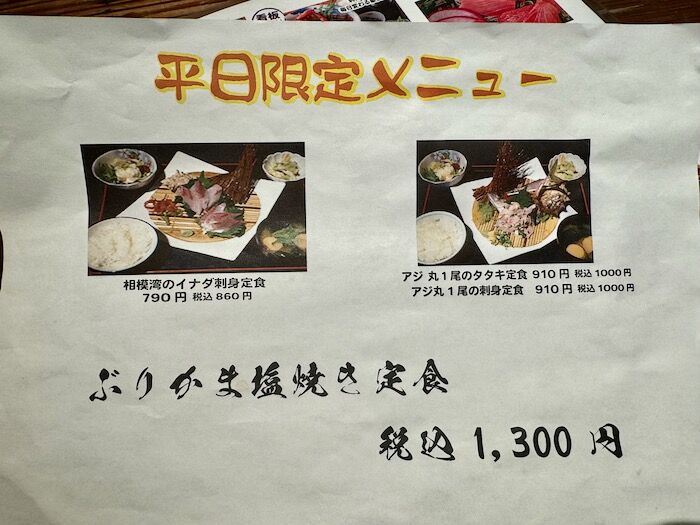 看板
毎日変わる
平日限定メニュー
相模湾のイナダ刺身定食
790円 税込860円
アジ 丸1尾のタタキ定食 910円 税込1000円
アジ丸1尾の刺身定食 910円 税込1000円
ぶりかま塩焼き定食
税込 1,300 円